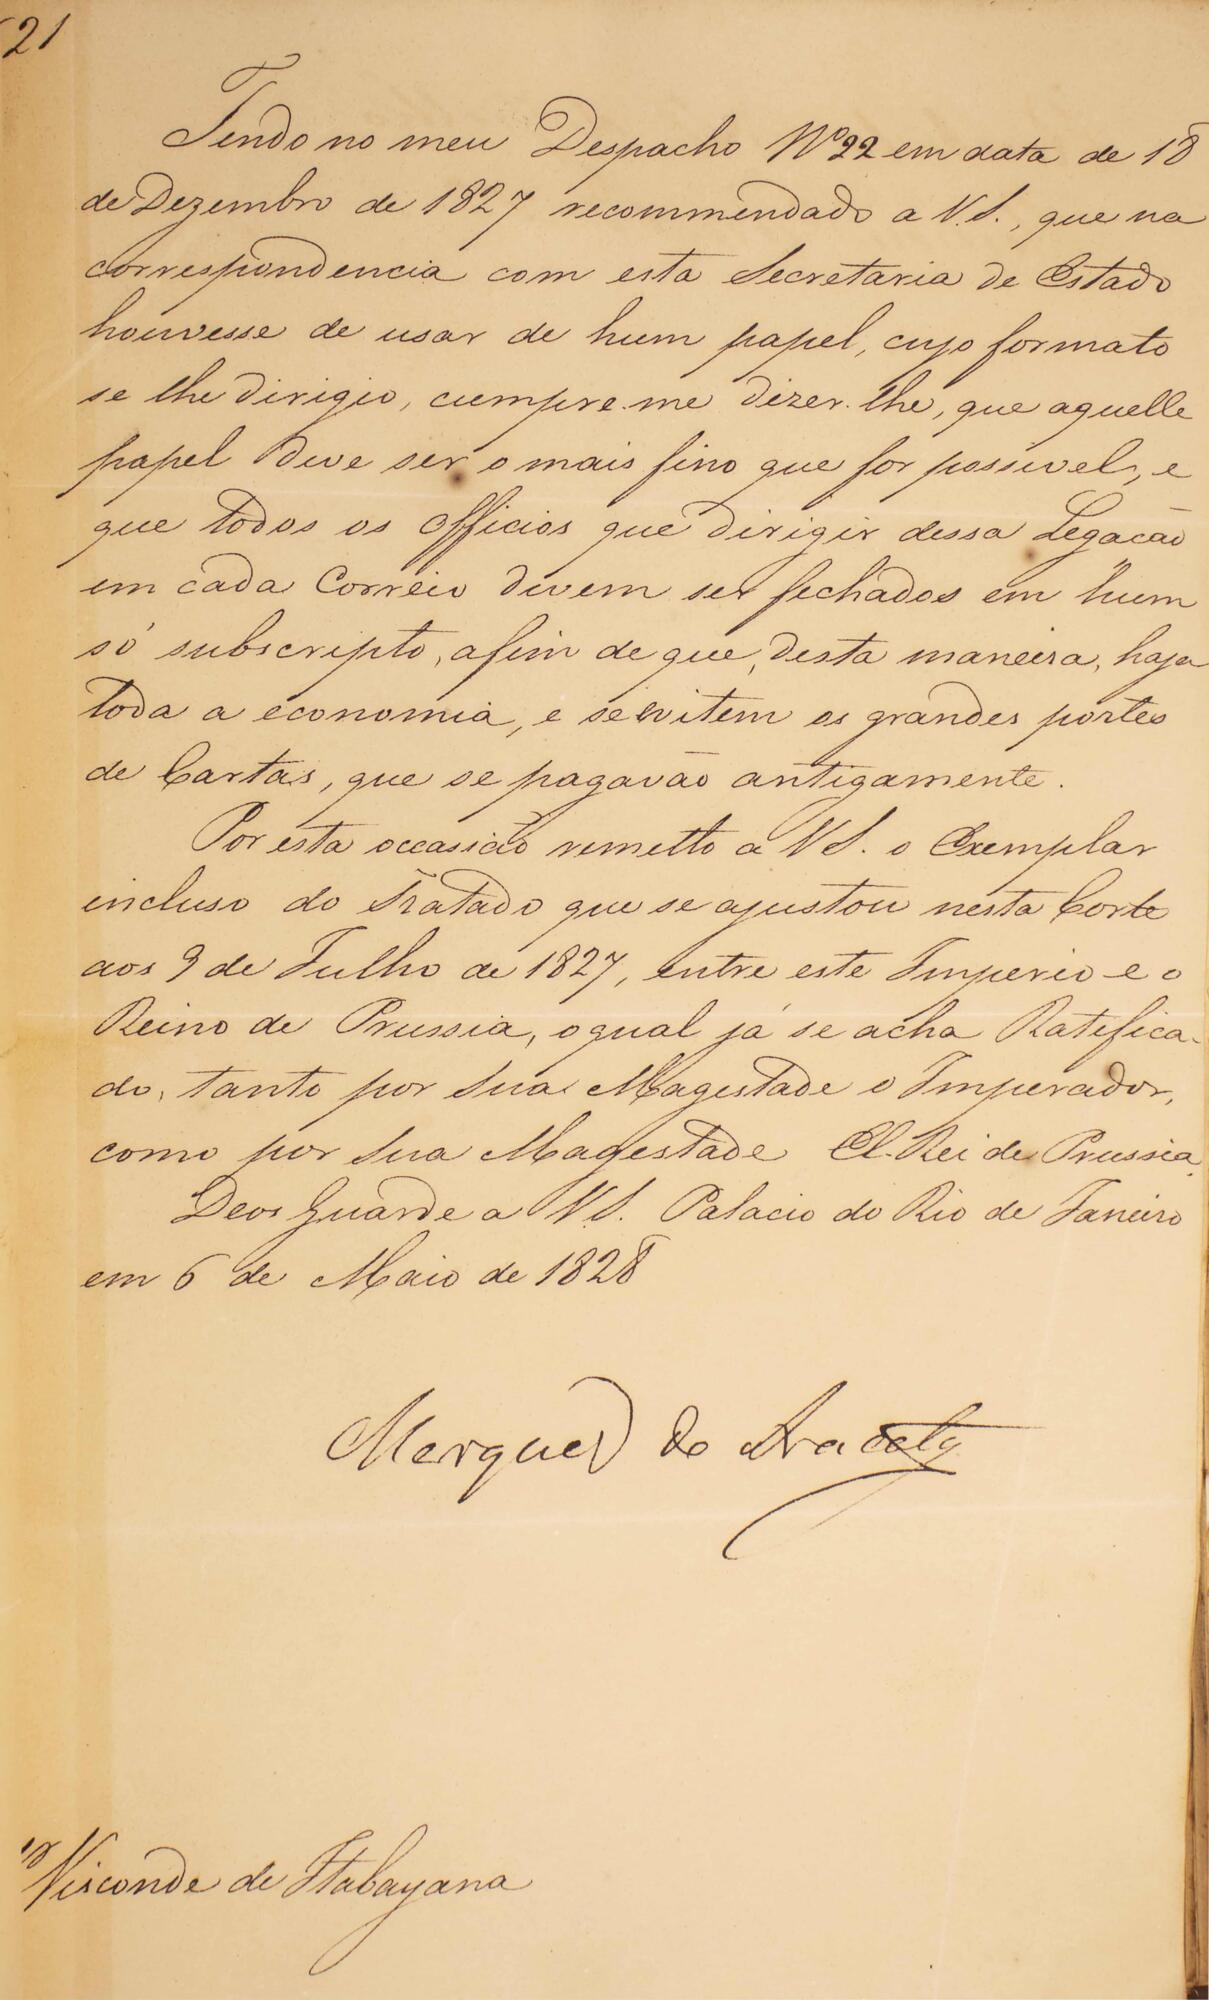 21
Tendo no meu Despacho Nº 22 em data de 18
de Dezembro de 1827 recommendado a V. S., que na
correspondencia com esta Secretaria de Estado
houvesse de usar de hum papel, cujo formato
se lhe dirigio, cumpre-me dizer-lhe, que aquelle
papel deve ser o mais fino que for possivel, e
que todos os Officios que dirigir dessa Legacão
em cada Correio devem ser fechados em hum
só subscripto, afim de que, desta maneira, haja
toda a economia, e se evitem os grandes portes
de Cartas, que se pagavão antigamente.
Por esta occasião remetto a V S. o Exemplar
incluso do Tratado que se ajustou nesta Corte
aos 9 de Julho de 1827, entre este Imperio e o
Reino de Prussia, o qual já se acha Ratifica-
do, tanto por Sua Magestade o Imperador,
como por Sua Magestade El-Rei de Prussia.
Deos Guarde a V. S. Palacio do Rio de Janeiro
em 6 de Maio de 1828
Marquez do Aracaty
Visconde de Itabayana